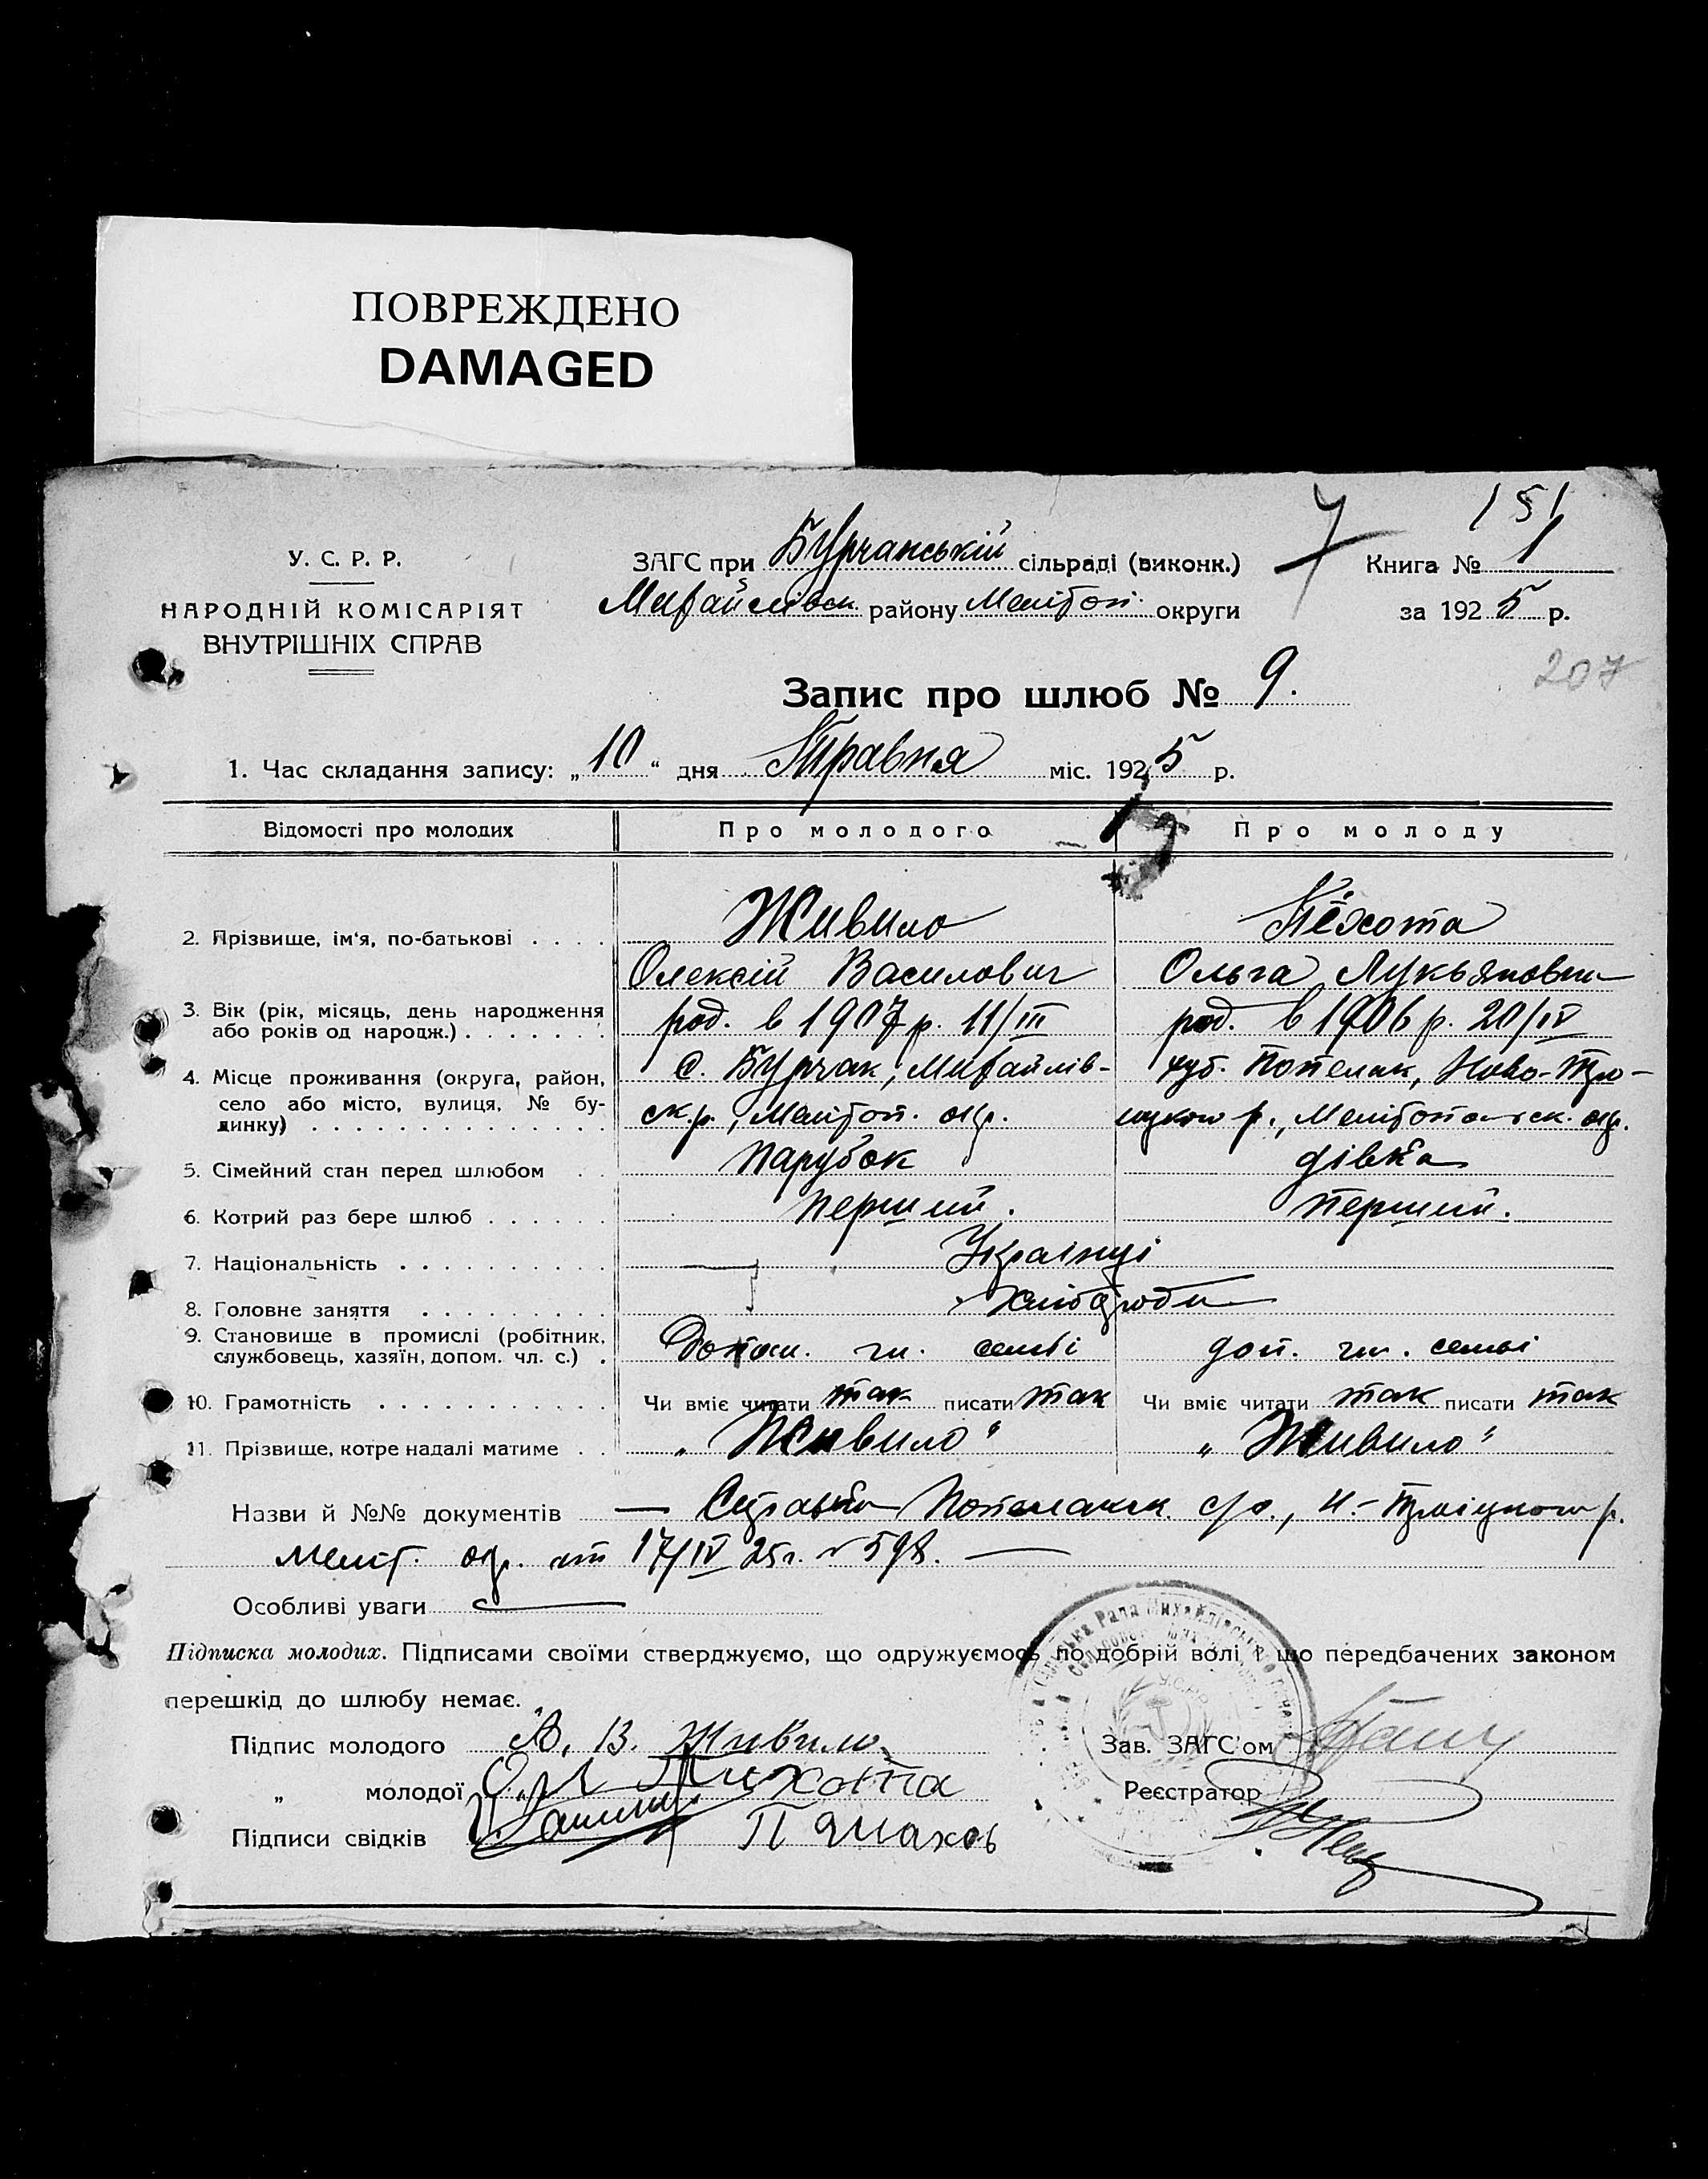 ПОВРЕЖДЕНО
DAMAGED
151
У. С. Р. Р.
НАРОДНІЙ КОМІСАРІЯТ
ВНУТРІШНІХ СПРАВ
ЗАГС при Бурчанській сільраді (виконк.)
Михайлівськ району Мелітоп. округи
7
Книга № 1
за 1925 р.
207
Запис про шлюб № 9.
1. Час складання запису: „10“ дня Травня міс. 1925 р.
Відомості про молодих Про молодого Про молоду
2. Прізвище, ім'я, по-батькові . . . . Живило Пехота
Олексій Василович Ольга Лукьяновна
3. Вік (рік, місяць, день народження або років од народж.) . . . . . . . род. в 1907 р. 11/III род. в 1906 р. 20/IV
4. Місце проживання (округа, район, село або місто, вулиця, № будинку) . . . . . . . . . . . . . . с. Бурчак, Михайлів- хут. Попелак, Ново-Тро-
ск. р., Мелітоп. окр. р., Мелітопольск. окр.
5. Сімейний стан перед шлюбом . . Парубок дівка
6. Котрий раз бере шлюб . . . . . . перший. перший.
7. Національність . . . . . . . . . . Українці
8. Головне заняття . . . . . . . . . Хлібороби
9. Становище в промислі (робітник, службовець, хазяїн, допом. чл. с.) . Допом. чл. семьі доп. чл. семьі
10. Грамотність . . . . . . . . . . . Чи вміє читати так писати так Чи вміє читати так писати так
11. Прізвище, котре надалі матиме . . „Живило“ „Живило“
Назви й №№ документів — Справка с/р., Н.- р.
Меліт. окр. от 17/IV 25 г. № 598. —
Особливі уваги —
Підписка молодих. Підписами своїми стверджуємо, що одружуємось по добрій волі і що передбачених законом
перешкід до шлюбу немає.
Підпис молодого А. В. Живило
„ молодої О. Л. Пихота
Підписи свідків П
Зав. ЗАГС'ом
Реєстратор